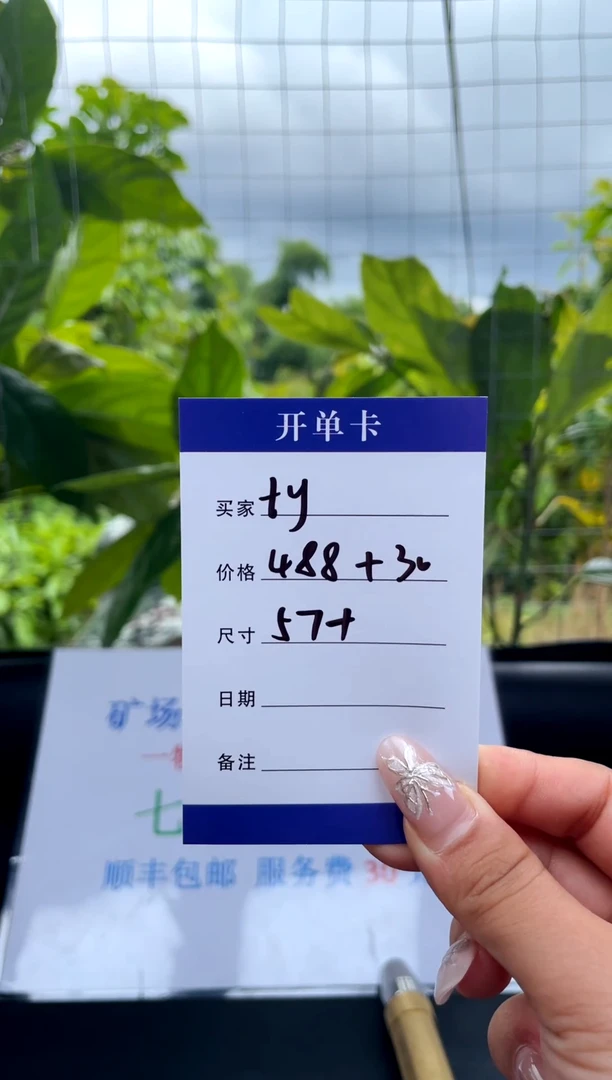 开单卡
买家 ty
价格 488+30
尺寸 57+
日期
备注
矿场
一
七
顺丰包邮 服务费30